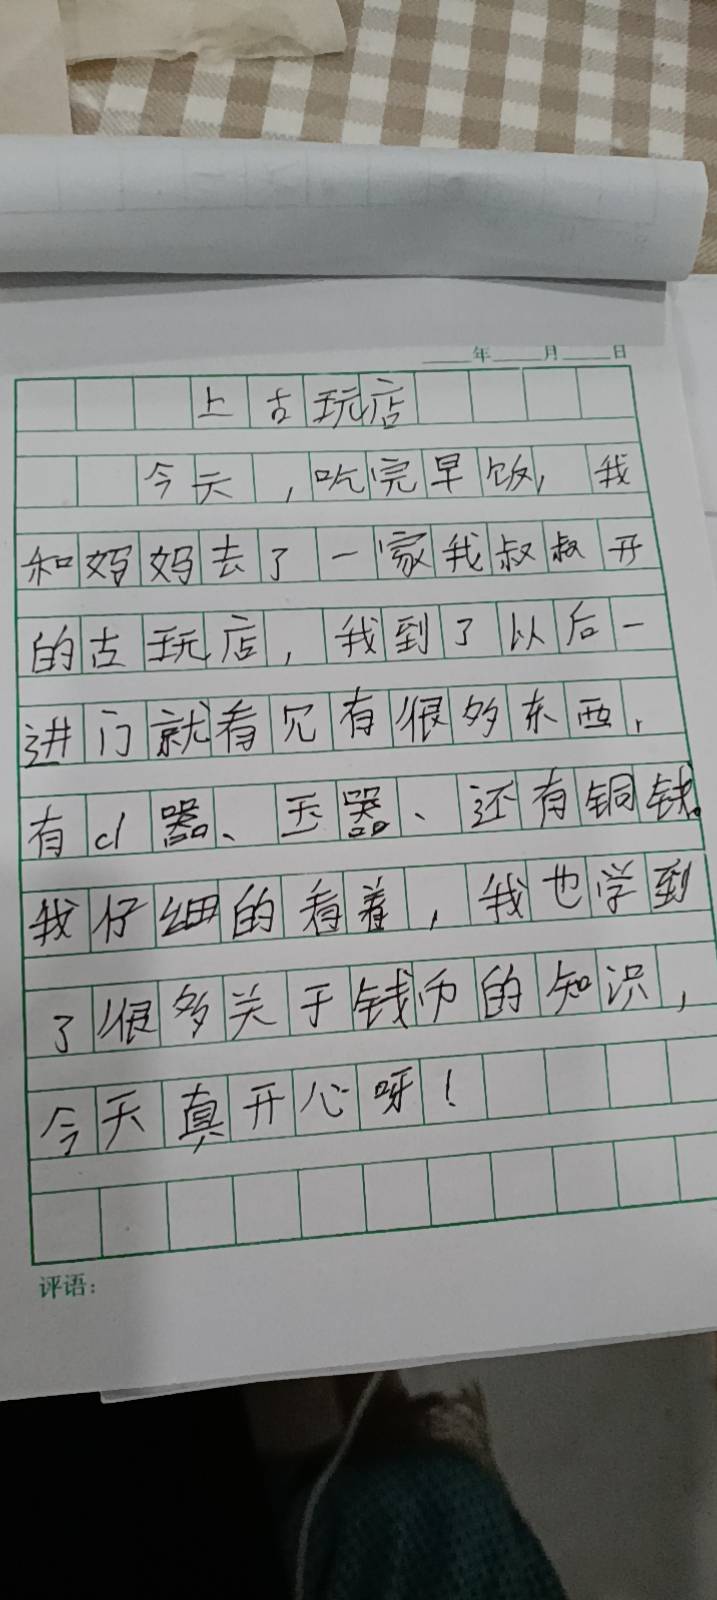 ____年____月____日
上古玩店
今天,吃完早饭,我
和妈妈去了一家我叔叔开
的古玩店,我到了以后一
进门就看见有很多东西,
有cl器、玉器、还有铜钱。
我仔细的看着,我也学到
了很多关于钱币的知识,
今天真开心呀!
评语: